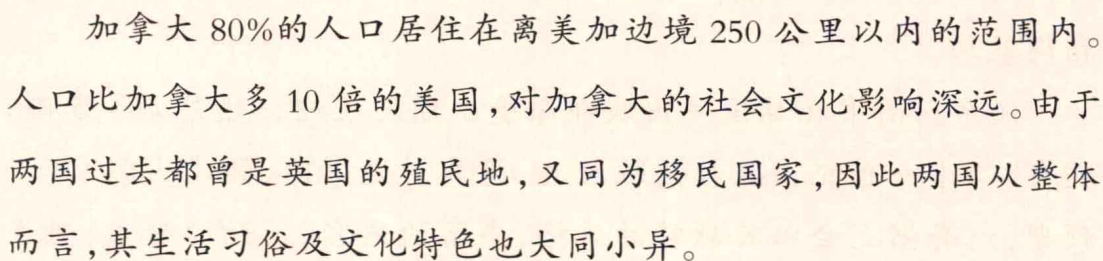 加拿大 80%的人口居住在离美加边境 250 公里以内的范围内。
人口比加拿大多 10 倍的美国,对加拿大的社会文化影响深远。由于
两国过去都曾是英国的殖民地,又同为移民国家,因此两国从整体
而言,其生活习俗及文化特色也大同小异。